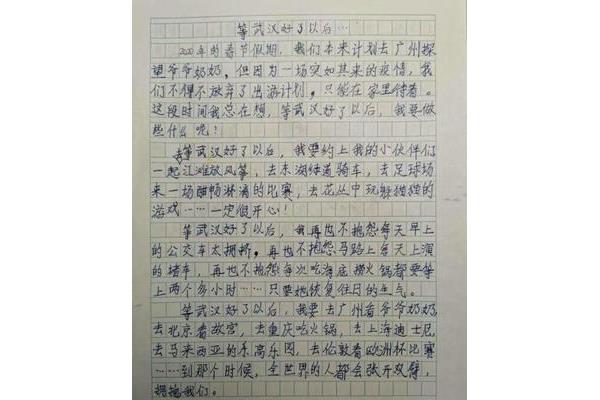 等武汉好了以后…
2020年的春节假期,我们本来计划去广州探
望爷爷奶奶,但因为一场突如其来的疫情,我
们不得不放弃了出游计划,只能在家里待着。
这段时间我总在想,等武汉好了以后,我要做
些什么呢!
等武汉好了以后,我要约上我的小伙伴们
一起江滩放风筝,去东湖绿道骑车,去足球场
来一场酣畅淋漓的比赛,去花丛中玩躲猫猫的
游戏……一定很开心!
等武汉好了以后,我再也不抱怨每天早上
的公交车太拥挤,再也不抱怨马路上每天上演
的堵车,再也不抱怨每次吃海底捞火锅都要等
上两个多小时……只要她恢复往日的生气。
等武汉好了以后,我要去广州看爷爷奶奶,
去北京看故宫,去重庆吃火锅,去上海迪士尼,
去马来西亚的乐高乐园,去伦敦看欧洲杯比赛
……到那个时候,全世界的人都会张开双臂,
拥抱我们。